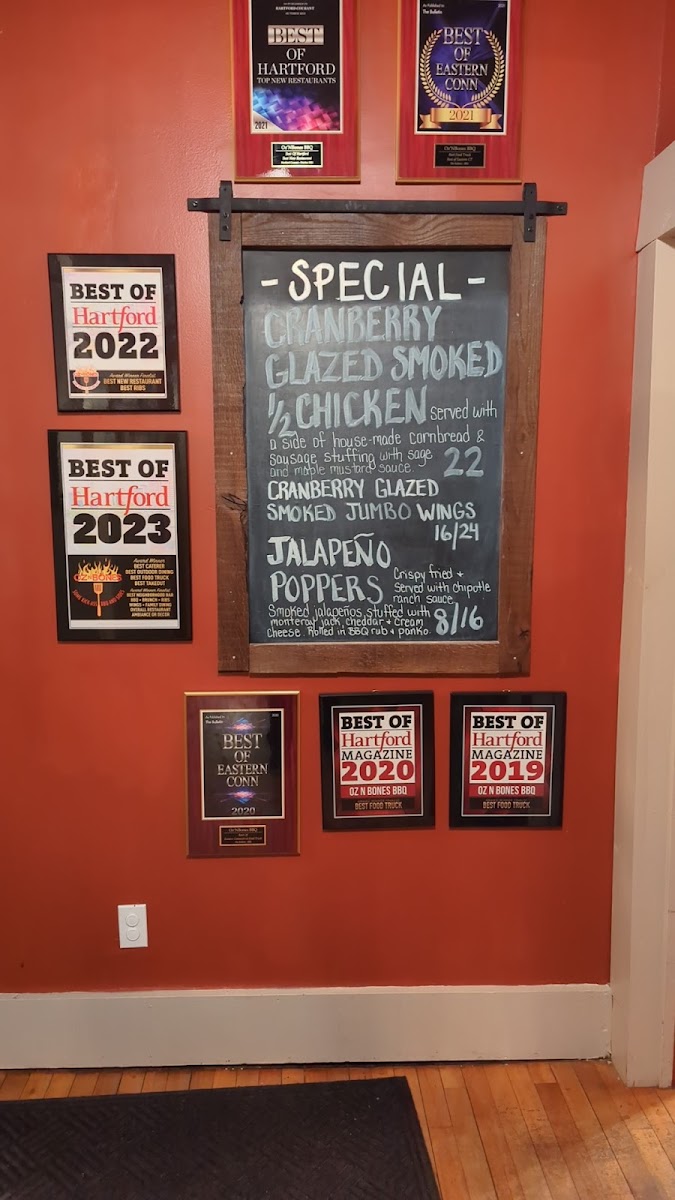 BEST
OF
HARTFORD
TOP NEW RESTAURANTS
2021
Oz'NBones BBQ
As Published in
The Bulletin
2021
BEST
OF
EASTERN
CONN
2021
Oz'NBones BBQ
BEST OF
Hartford
2022
Award Winner Finalist
BEST NEW RESTAURANT
BEST RIBS
BEST OF
Hartford
2023
OZ N BONES
Award Winner
BEST CATERER
BEST OUTDOOR DINING
BEST FOOD TRUCK
BEST TAKEOUT
Award Winner Finalist
BEST NEIGHBORHOOD BAR
BBQ • BRUNCH • RIBS
WINGS • FAMILY DINING
OVERALL RESTAURANT
AMBIANCE OR DECOR
- SPECIAL -
CRANBERRY
GLAZED SMOKED
1/2 CHICKEN served with
a side of house-made cornbread &
sausage stuffing with sage
and maple mustard sauce 22
CRANBERRY GLAZED
SMOKED JUMBO WINGS
16/24
JALAPEÑO
POPPERS Crispy fried +
served with chipotle
ranch sauce
Smoked jalapeños, stuffed with
monteray jack, cheddar + cream
cheese. Rolled in BBQ rub + panko. 8/16
As Published in
The Bulletin
2020
BEST
OF
EASTERN
CONN
2020
Oz'NBones BBQ
BEST OF
Hartford
MAGAZINE
2020
OZ N BONES BBQ
BEST FOOD TRUCK
BEST OF
Hartford
MAGAZINE
2019
OZ N BONES BBQ
BEST FOOD TRUCK